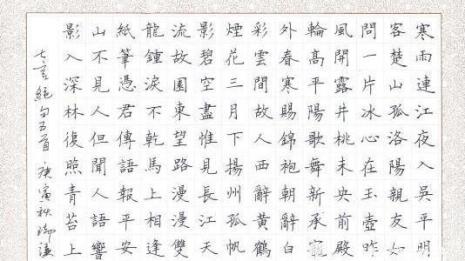 寒雨連江夜入吴平明
客楚山孤洛陽親友如
問一片冰心在玉壺昨
風開露井桃未央前殿
輪高平陽歌舞新承寵
外春寒賜錦袍朝辭白
彩雲間故人西辭黄鶴
煙花三月下揚州孤帆
影碧空盡惟見長江天
流故園東望路漫漫雙
龍鍾淚不乾馬上相逢
紙筆憑君傳語報平安
山不見人但聞人語響
影入深林復照青苔上
七言絕句五首 庚寅秋